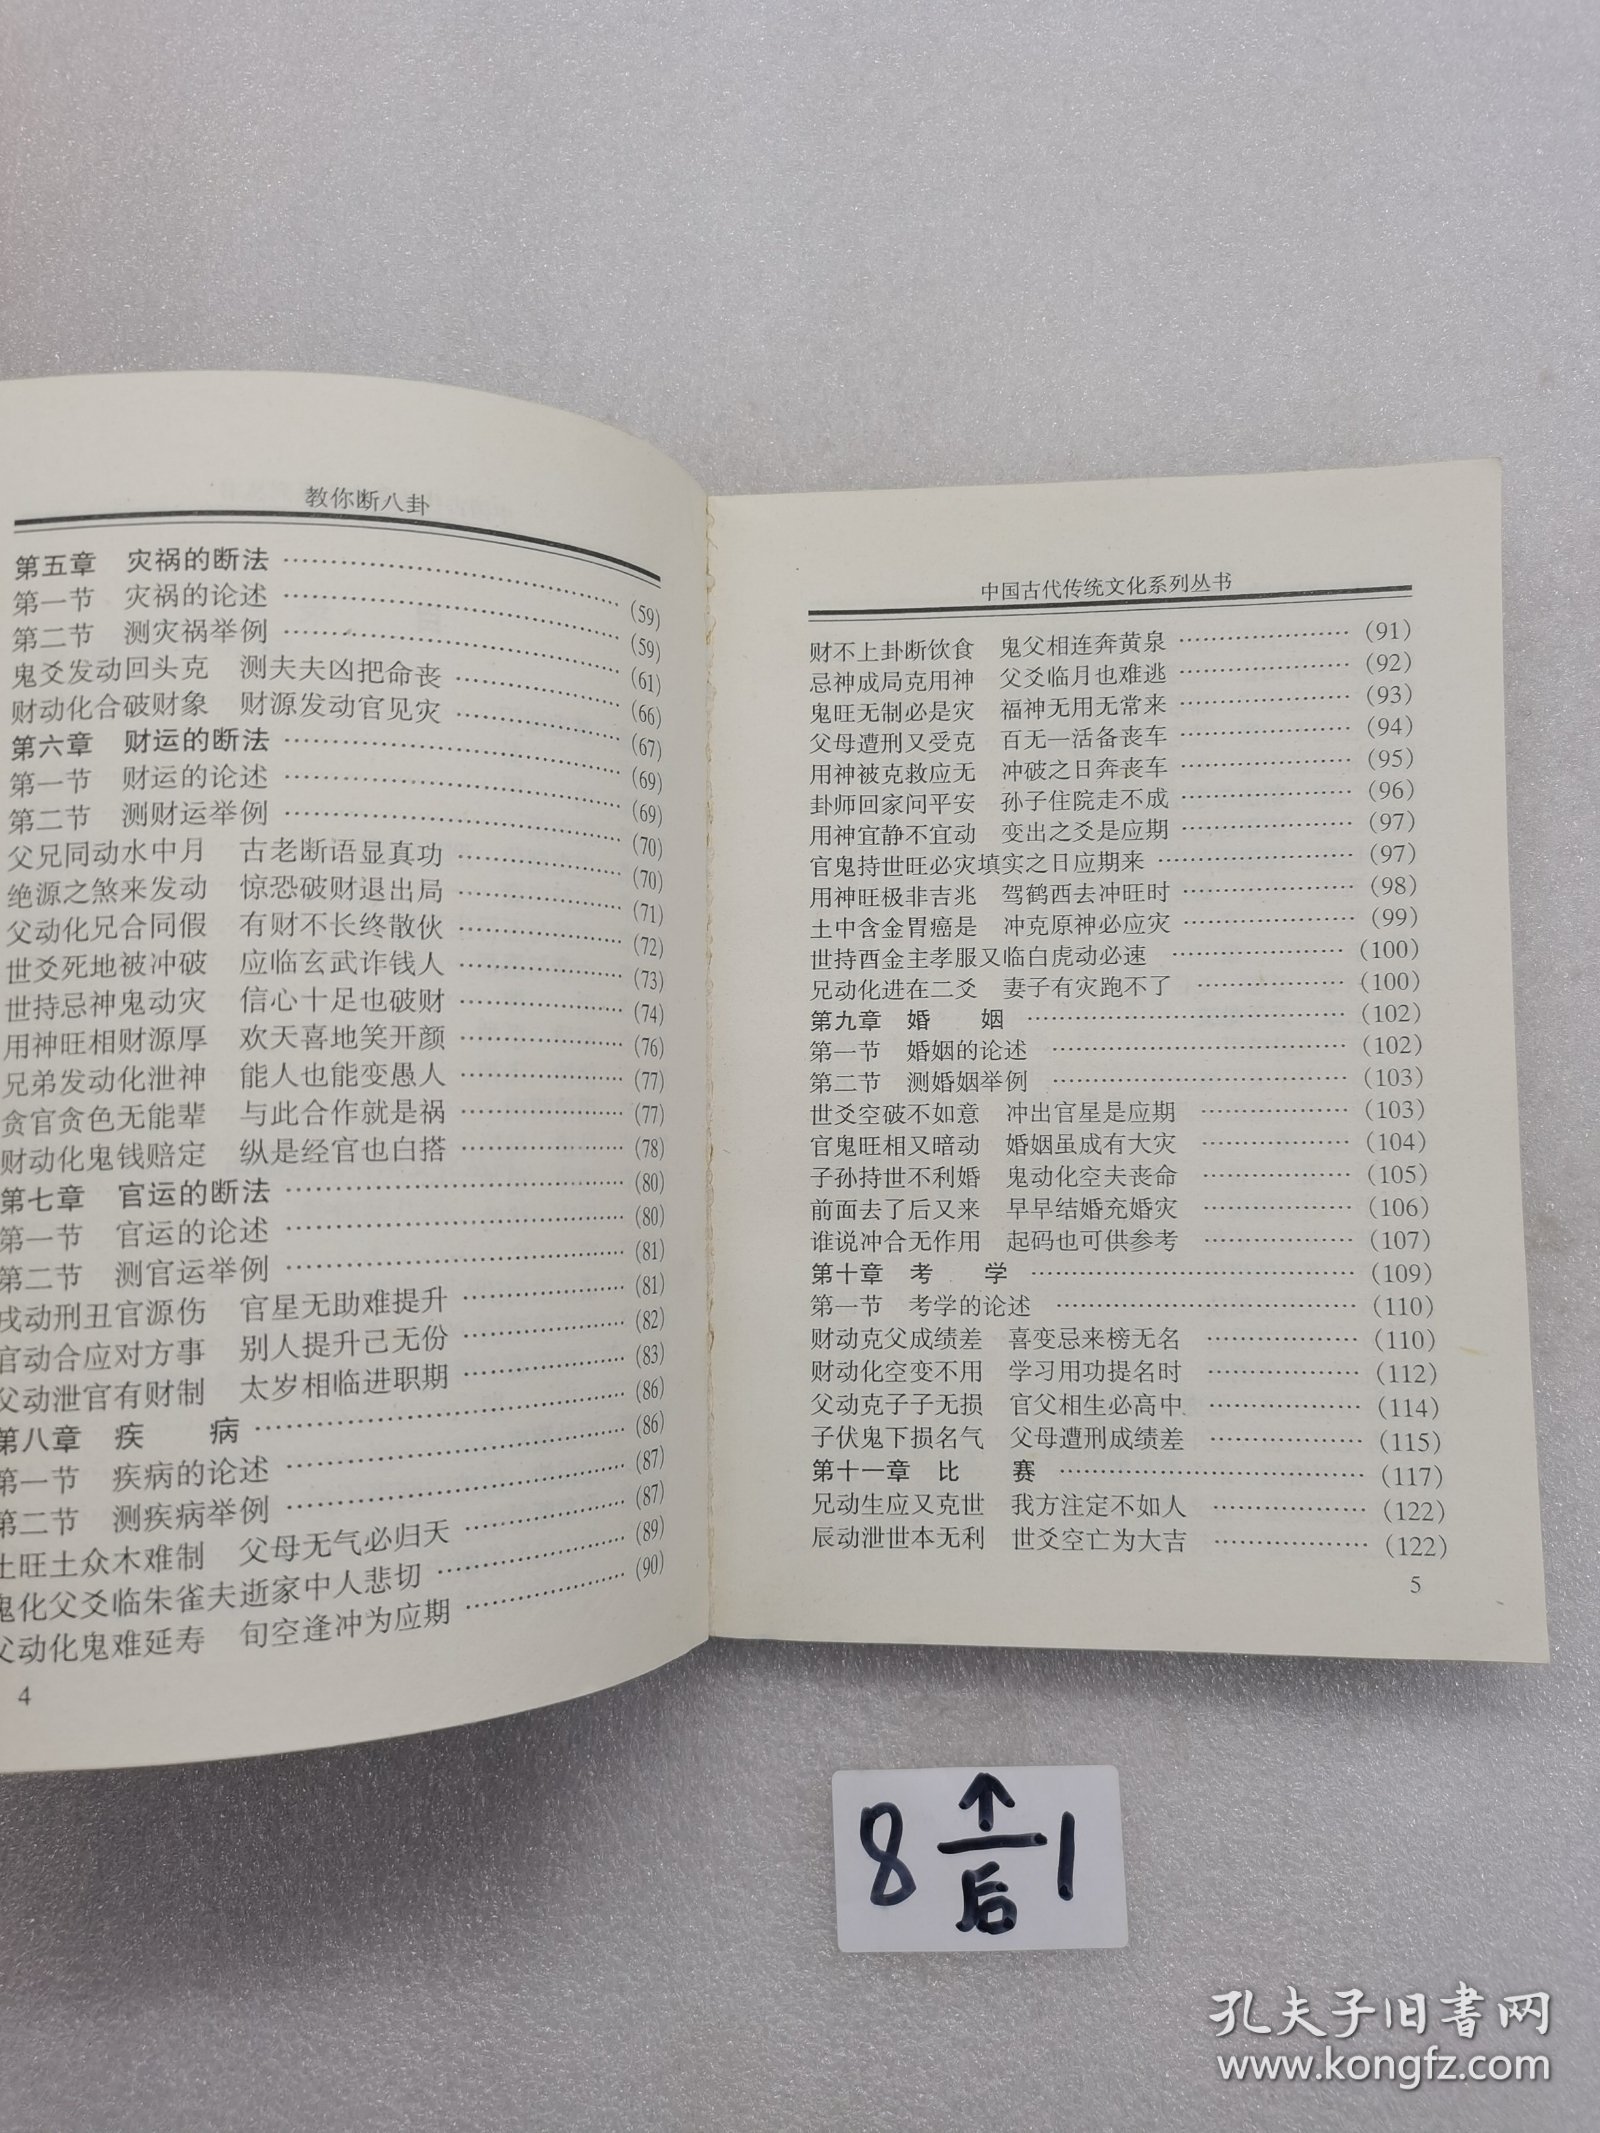 教你断八卦
第五章 灾祸的断法 ………… (59)
第一节 灾祸的论述 ………… (59)
第二节 测灾祸举例 ………… (61)
鬼爻发动回头克 测夫夫凶把命丧 ………… (66)
财动化合破财象 财源发动官见灾 ………… (67)
第六章 财运的断法 ………… (69)
第一节 财运的论述 ………… (69)
第二节 测财运举例 ………… (70)
父兄同动水中月 古老断语显真功 ………… (70)
绝源之煞来发动 惊恐破财退出局 ………… (71)
父动化兄合同假 有财不长终散伙 ………… (72)
世爻死地被冲破 应临玄武诈钱人 ………… (73)
世持忌神鬼动灾 信心十足也破财 ………… (74)
用神旺相财源厚 欢天喜地笑开颜 ………… (76)
兄弟发动化泄神 能人也能变愚人 ………… (77)
贪官贪色无能辈 与此合作就是祸 ………… (77)
财动化鬼钱赔定 纵是经官也白搭 ………… (78)
第七章 官运的断法 ………… (80)
第一节 官运的论述 ………… (80)
第二节 测官运举例 ………… (81)
戌动刑丑官源伤 官星无助难提升 ………… (81)
官动合应对方事 别人提升己无份 ………… (82)
父动泄官有财制 太岁相临进职期 ………… (83)
第八章 疾 病 ………… (86)
第一节 疾病的论述 ………… (86)
第二节 测疾病举例 ………… (87)
土旺土众木难制 父母无气必归天 ………… (87)
鬼化父爻临朱雀夫逝家中人悲切 ………… (89)
父动化鬼难延寿 旬空逢冲为应期 ………… (90)
4
中国古代传统文化系列丛书
财不上卦断饮食 鬼父相连奔黄泉 ………… (91)
忌神成局克用神 父爻临月也难逃 ………… (92)
鬼旺无制必是灾 福神无用无常来 ………… (93)
父母遭刑又受克 百无一活备丧车 ………… (94)
用神被克救应无 冲破之日奔丧车 ………… (95)
卦师回家问平安 孙子住院走不成 ………… (96)
用神宜静不宜动 变出之爻是应期 ………… (97)
官鬼持世旺必灾填实之日应期来 ………… (97)
用神旺极非吉兆 驾鹤西去冲旺时 ………… (98)
土中含金胃癌是 冲克原神必应灾 ………… (99)
世持酉金主孝服又临白虎动必速 ………… (100)
兄动化进在二爻 妻子有灾跑不了 ………… (100)
第九章 婚 姻 ………… (102)
第一节 婚姻的论述 ………… (102)
第二节 测婚姻举例 ………… (103)
世爻空破不如意 冲出官星是应期 ………… (103)
官鬼旺相又暗动 婚姻虽成有大灾 ………… (104)
子孙持世不利婚 鬼动化空夫丧命 ………… (105)
前面去了后又来 早早结婚充婚灾 ………… (106)
谁说冲合无作用 起码也可供参考 ………… (107)
第十章 考 学 ………… (109)
第一节 考学的论述 ………… (110)
财动克父成绩差 喜变忌来榜无名 ………… (110)
财动化空变不用 学习用功提名时 ………… (112)
父动克子子无损 官父相生必高中 ………… (114)
子伏鬼下损名气 父母遭刑成绩差 ………… (115)
第十一章 比 赛 ………… (117)
兄动生应又克世 我方注定不如人 ………… (122)
辰动泄世本无利 世爻空亡为大吉 ………… (122)
5
8 ↑ 后 1
孔夫子旧书网
www.kongfz.com